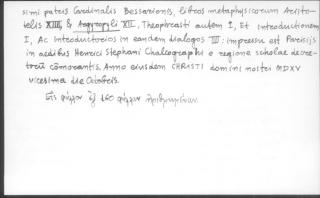 simi patris Cardinalis Bessarionis, libros metaphysicorum Aristo-
telis XIIII, & Argyropyli XII, Theophrasti autem I, Et Introductionem
I, Ac Introductorios in eandem dialogos III: impressum est Parisijs
in aedibus Henrici Stephani Chalcographi e regione scholae decre-
torū cōmorantis. Anno eiusdem CHRISTI domini nostri MDXV
vicesima die Octobris.
φύλλον